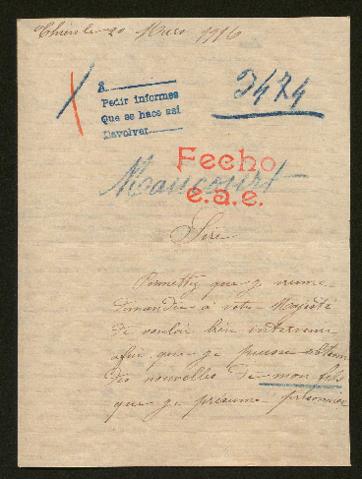 20 Mars 1916
3474
S.
Pedir informes
Que se hace asi
Devolver
Fecho
e.a.e.
Maucourt
Sire
Permettez que je
demander à votre Majesté
de vouloir bien intervenir
afin que je puisse obtenir
des nouvelles de mon fils
que je présume prisonnier